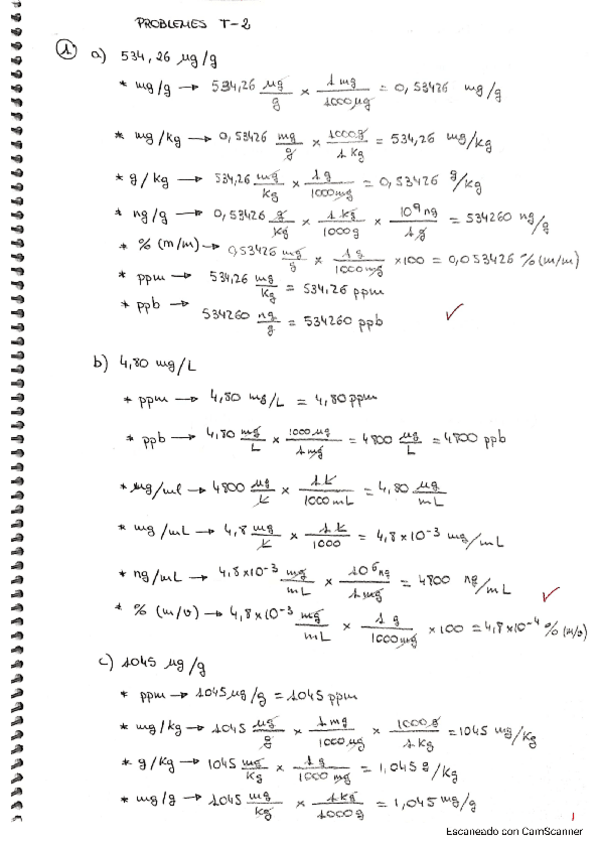 PROBLEMES T-2
1 a) 534,26 µg/g
* mg/g → 534,26 µg/g × 1 mg/1000 µg = 0,53426 mg/g
* mg/kg → 0,53426 mg/g × 1000 g/1 kg = 534,26 mg/kg
* g/kg → 534,26 mg/kg × 1 g/1000 mg = 0,53426 g/kg
* ng/g → 0,53426 g/kg × 1 kg/1000 g × 10⁹ ng/1 g = 534260 ng/g
* % (m/m) → 0,53426 mg/g × 1 g/1000 mg × 100 = 0,053426 % (m/m)
* ppm → 534,26 mg/kg = 534,26 ppm
* ppb → 534260 ng/g = 534260 ppb ✓
b) 4,80 mg/L
* ppm → 4,80 mg/L = 4,80 ppm
* ppb → 4,80 mg/L × 1000 µg/1 mg = 4800 µg/L = 4800 ppb
* µg/ml → 4800 µg/L × 1 L/1000 mL = 4,80 µg/mL
* mg/mL → 4,8 mg/L × 1 L/1000 = 4,8×10⁻³ mg/mL
* ng/mL → 4,8×10⁻³ mg/mL × 10⁶ ng/1 mg = 4800 ng/mL ✓
* % (m/v) → 4,8×10⁻³ mg/mL × 1 g/1000 mg × 100 = 4,8×10⁻⁴ % (m/v)
c) 1045 µg/g
* ppm → 1045 µg/g = 1045 ppm
* mg/kg → 1045 µg/g × 1 mg/1000 µg × 1000 g/1 kg = 1045 mg/kg
* g/kg → 1045 mg/kg × 1 g/1000 mg = 1,045 g/kg
* mg/g → 1045 mg/kg × 1 kg/1000 g = 1,045 mg/g
Escaneado con CamScanner